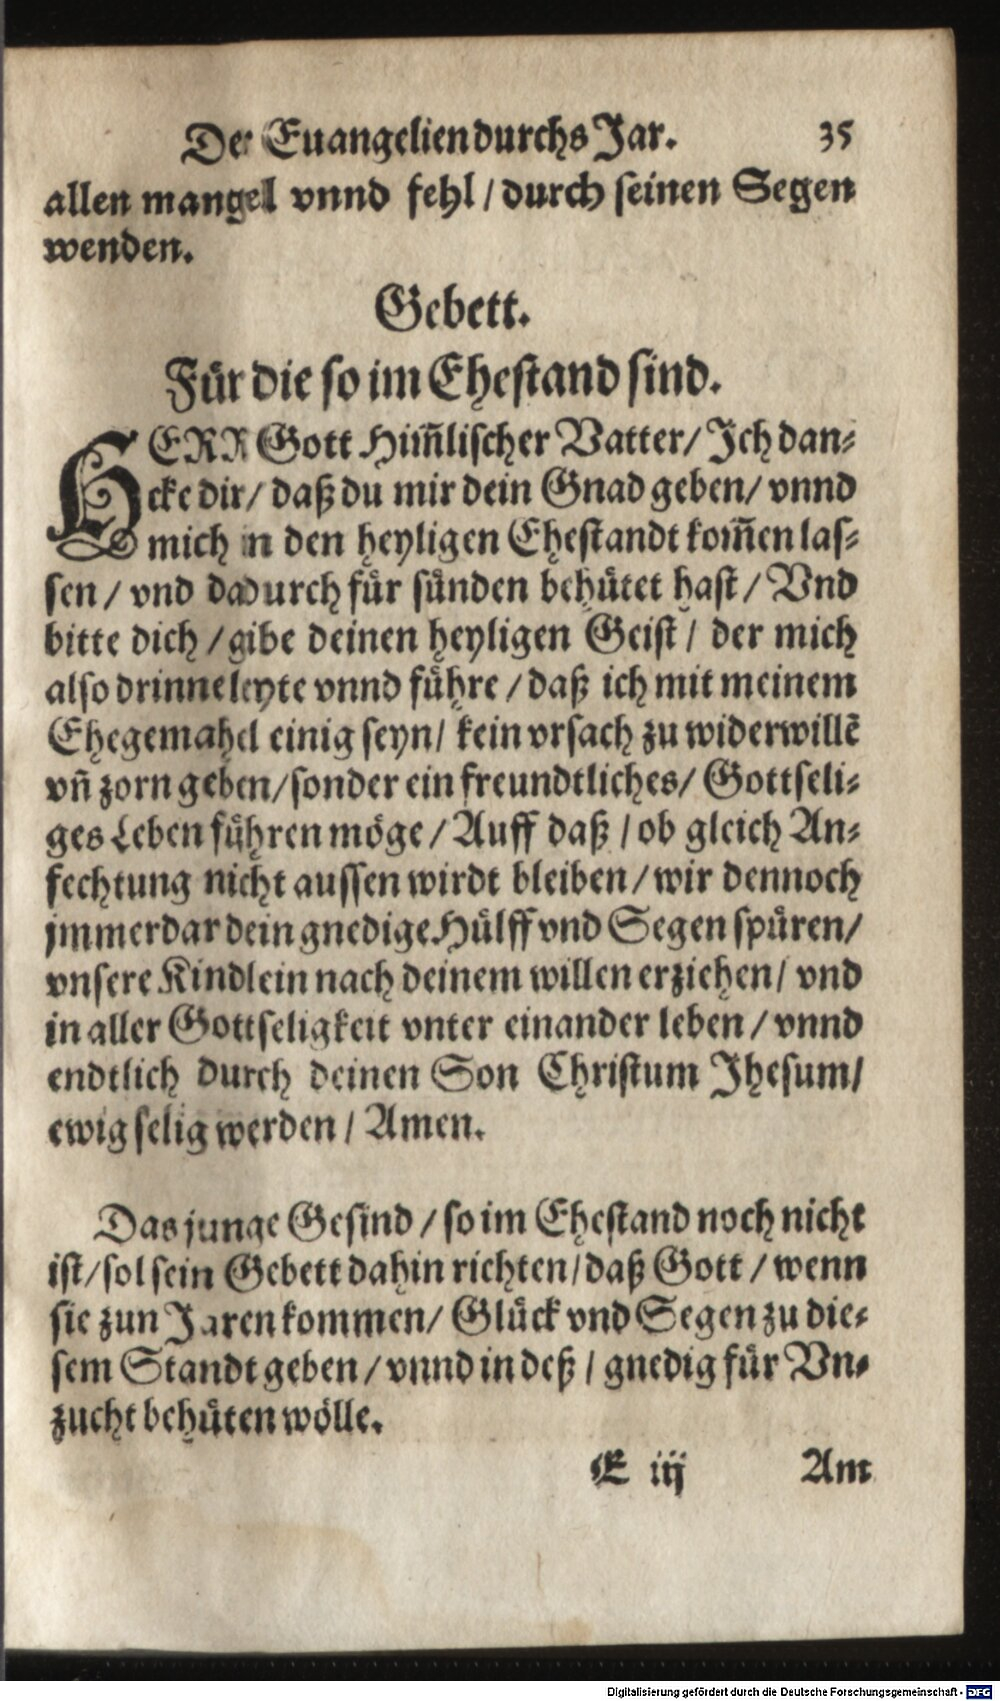 Der Euangelien durchs Jar. 35
allen mangel vnnd fehl / durch seinen Segen
wenden.
Gebett.
Für die so im Ehestand sind.
HERR Gott Him̃lischer Vatter / Ich dan-
cke dir / daß du mir dein Gnad geben / vnnd
mich in den heyligen Ehestandt kom̃en las-
sen / vnd dadurch für sünden behütet hast / Vnd
bitte dich / gibe deinen heyligen Geist / der mich
also drinne leyte vnnd führe / daß ich mit meinem
Ehegemahel einig seyn / kein vrsach zu widerwillẽ
vñ zorn geben / sonder ein freundtliches / Gottseli-
ges Leben führen möge / Auff daß / ob gleich An-
fechtung nicht aussen wirdt bleiben / wir dennoch
jmmerdar dein gnedige Hülff vnd Segen spüren /
vnsere Kindlein nach deinem willen erziehen / vnd
in aller Gottseligkeit vnter einander leben / vnnd
endtlich durch deinen Son Christum Jhesum /
ewig selig werden / Amen.
Das junge Gesind / so im Ehestand noch nicht
ist / sol sein Gebett dahin richten / daß Gott / wenn
sie zun Jaren kommen / Glück vnd Segen zu die-
sem Standt geben / vnnd in deß / gnedig für Vn-
zucht behüten wölle.
E iij Am
Digitalisierung gefördert durch die Deutsche Forschungsgemeinschaft - DFG